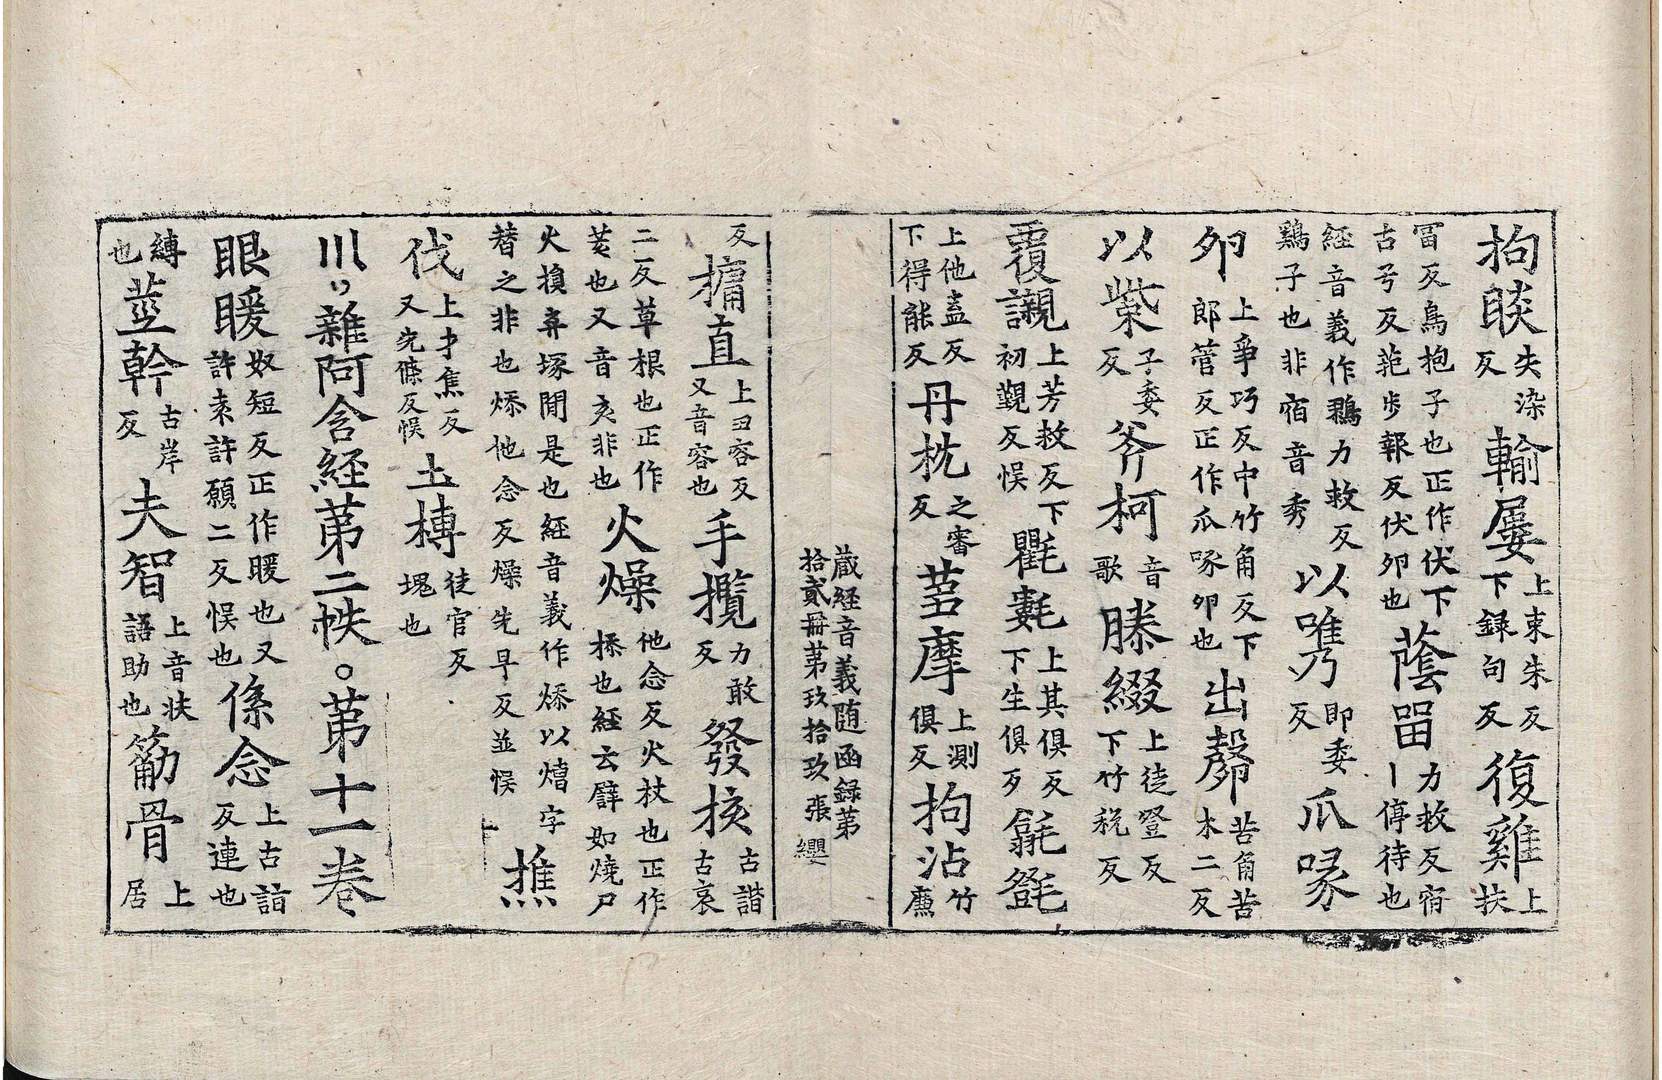 拘睒失染反輸屢上束朱反下録句反復雞上扶
冨反烏抱子也正作伏下古兮反菢步報反伏夘也蔭畱力救反宿丨停待也
経音義作鷚力救反鷄子也非宿音秀以嶲即委反爪㖨
夘上爭巧反中竹角反下郎管反正作爪啄夘也出㲉苦角苦木二反
以紫子委反斧柯音歌縢綴上徒登反下竹稅反
覆讖上芳救反下初覲反悮氍𣯜上其俱反下生俱反毾㲪
上他盍反下得能反丹枕之審反蒭摩上測俱反拘沾竹㢘
蔵経音義随函録第拾貳冊苐玖拾玖張 纓
反㨪直上㠯容反又音容也手㩜力敢反發核古諧古哀
二反草根也正作荄也又音亥非也火燥他念反火杖也正作㮇也経云譬如燒尸
火㨪弃塚間是也経音義作㮇以熸字替之非也㮇他念反燥先早反並悮 㩌
伐上才焦反又先條反悮土㙛徒官反塊也
川リ雜阿含経第二帙。苐十一卷
眼暖奴短反正作暖也又許袁許願二反悮也係念上古詣反連也
縛也莖幹古岸反夫智上音扶語助也筋骨上居